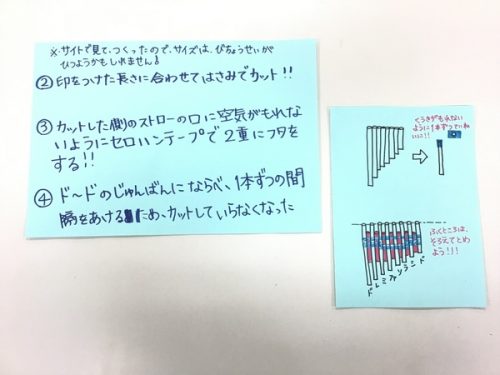 ※サイトで見て、つくったので、サイズは、びちょうせいが
ひつようかもしれません。
② 印をつけた長さに合わせてはさみでカット!!
③ カットした側のストローの口に空気がもれな
いようにセロハンテープで2重にフタを
する!!
④ ド〜ドのじゅんばんにならべ、1本ずつの間
隔をあけるため、カットしていらなくなった
くうきがもれない
ように1本ずつていねい
に!!
ふくところは、
そろえてとめ
よう!!!
ドレミファソラシド